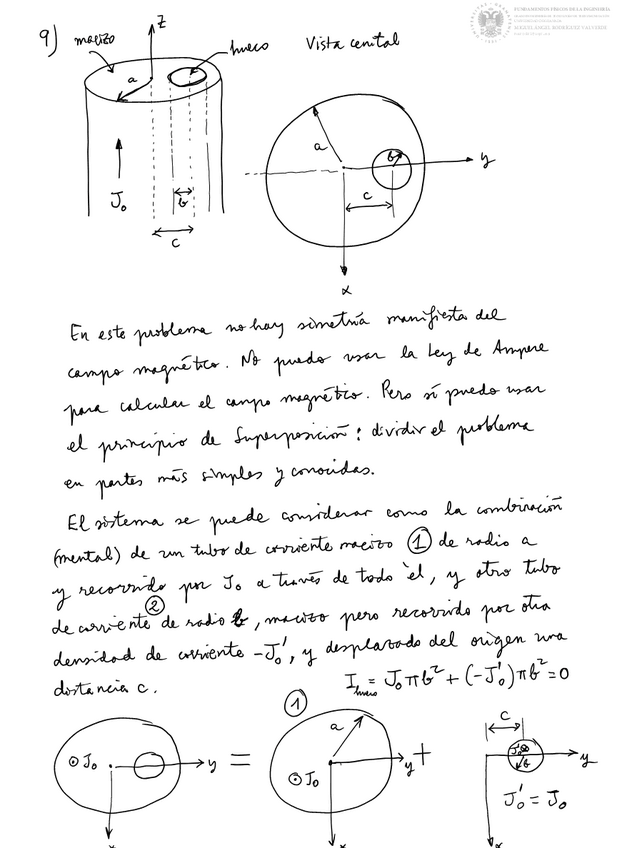 FUNDAMENTOS FÍSICOS DE LA INGENIERÍA
MIGUEL ÁNGEL RODRÍGUEZ VALVERDE
9)
macizo
z
hueco
Vista cenital
a
J₀
b
c
a
b
y
c
x
En este problema no hay simetría manifiesta del
campo magnético. No puedo usar la Ley de Ampere
para calcular el campo magnético. Pero sí puedo usar
el principio de Superposición: dividir el problema
en partes más simples y conocidas.
El sistema se puede considerar como la combinación
(mental) de un tubo de corriente macizo ① de radio a
y recorrido por J₀ a través de todo él, y otro tubo
②
de corriente de radio b, macizo pero recorrido por otra
densidad de corriente -J₀', y desplazado del origen una
distancia c.
I_hueco = J₀πb² + (-J₀')πb² = 0
①
⊙ J₀ y =
a ⊙ J₀ y +
c J₀' ⊗ b y
J₀' = J₀
x x x